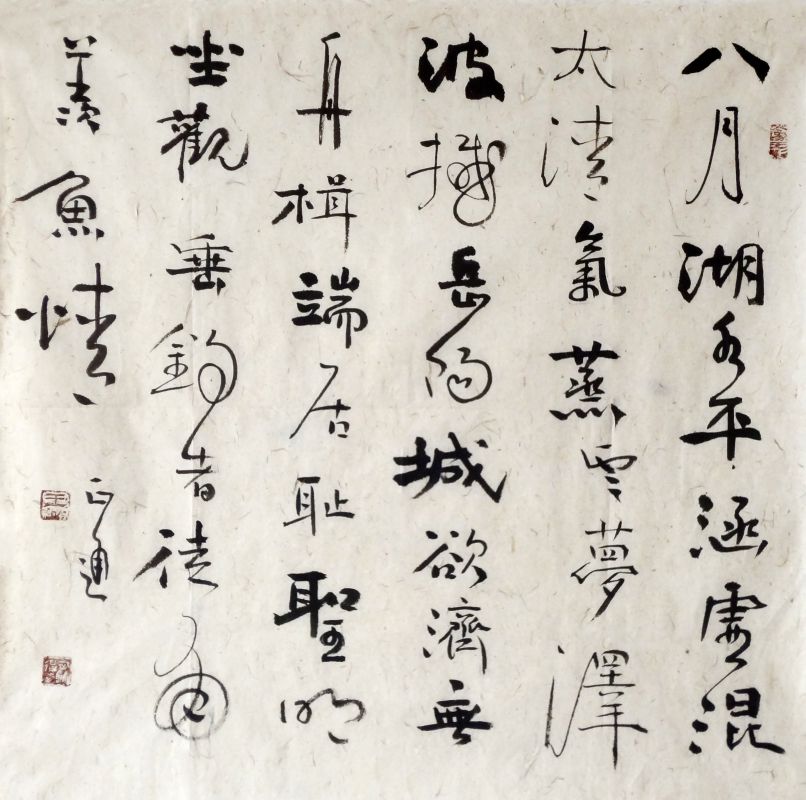 八月湖水平涵虛混
太清氣蒸雲夢澤
波撼岳陽城欲濟無
舟楫端居耻聖明
坐觀垂釣者徒有
羨魚情
正通